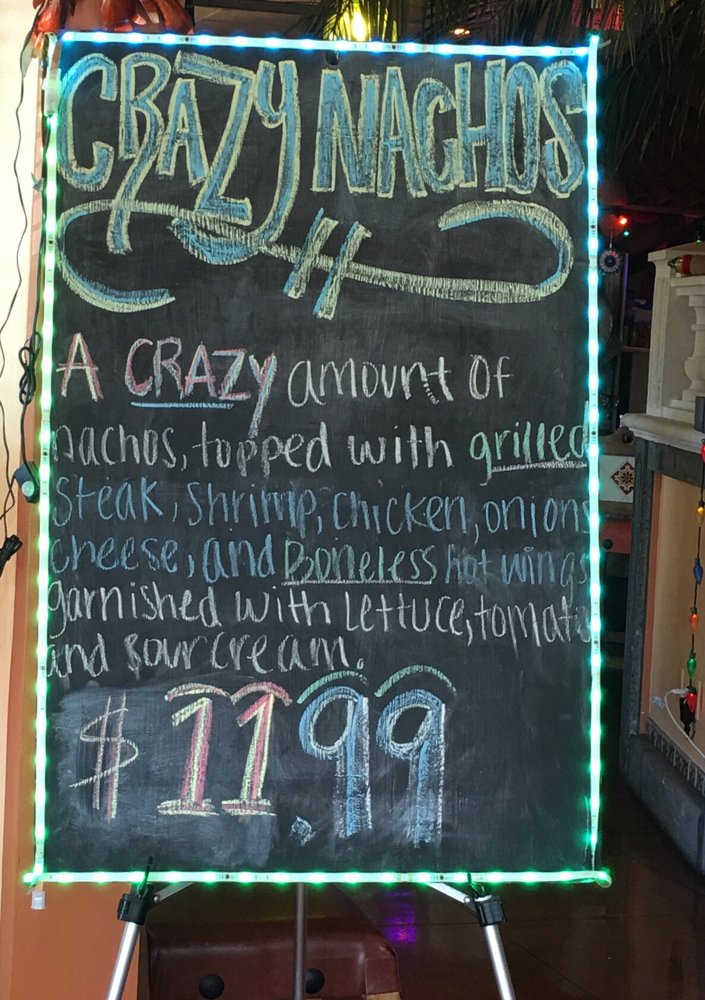 CRAZY NACHOS
A CRAZY amount OF
nachos, topped with grilled
Steak, shrimp, chicken, onions
cheese, and Boneless hot wings
garnished with Lettuce, tomato
and sour cream.
$11.99